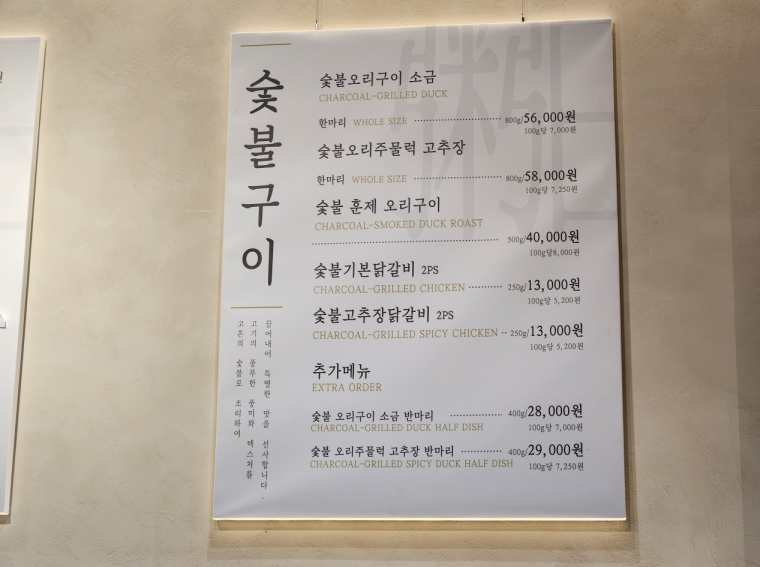 숯불구이
고온의 숯불로 조리하여
고기의 풍부한 풍미와 텍스처를
끌어내어 특별한 맛을 선사합니다.
숯불오리구이 소금
CHARCOAL-GRILLED DUCK
한마리 WHOLE SIZE 800g/56,000원
100g당 7,000원
숯불오리주물럭 고추장
한마리 WHOLE SIZE 800g/58,000원
100g당 7,250원
숯불 훈제 오리구이
CHARCOAL-SMOKED DUCK ROAST
500g/40,000원
100g당8,000원
숯불기본닭갈비 2PS
CHARCOAL-GRILLED CHICKEN 250g/13,000원
100g당 5,200원
숯불고추장닭갈비 2PS
CHARCOAL-GRILLED SPICY CHICKEN 250g/13,000원
100g당 5,200원
추가메뉴
EXTRA ORDER
숯불 오리구이 소금 반마리 400g/28,000원
CHARCOAL-GRILLED DUCK HALF DISH 100g당 7,000원
숯불 오리주물럭 고추장 반마리 400g/29,000원
CHARCOAL-GRILLED SPICY DUCK HALF DISH 100g당 7,250원